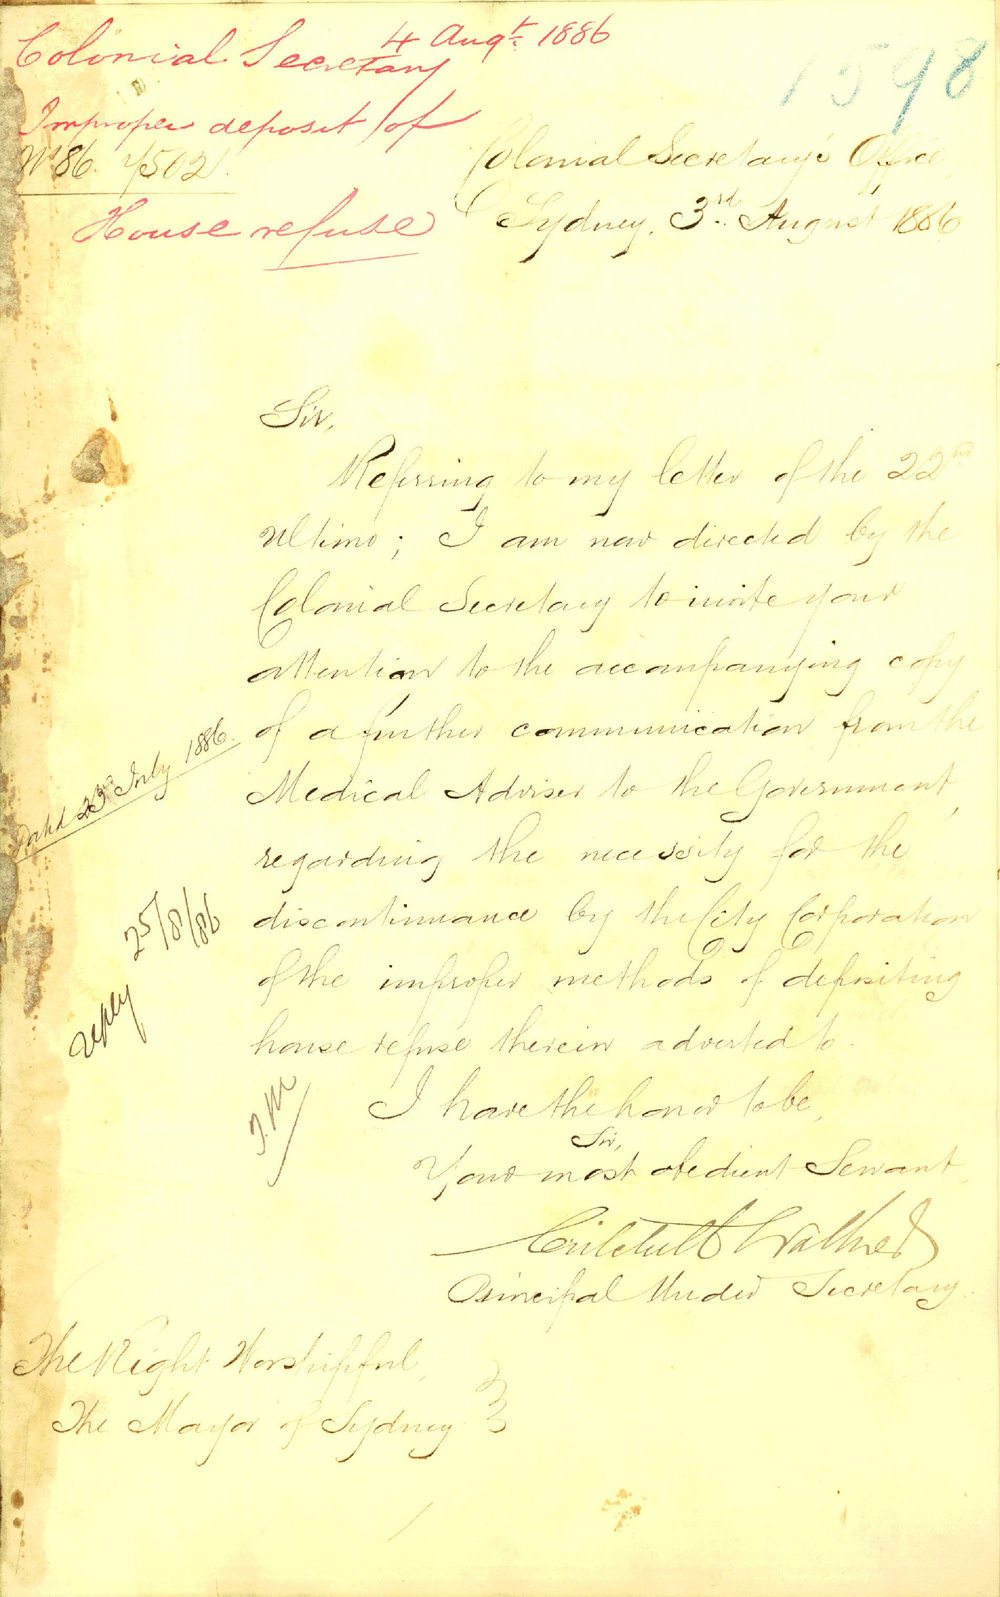 4 Augt. 1886
Colonial Secretary
1598
Improper deposit of
No 86. 7502.
House refuse
Colonial Secretary's Office,
Sydney, 3rd August 1886
Sir,
Referring to my letter of the 22nd
Ultimo; I am now directed by the
Colonial Secretary to invite your
attention to the accompanying copy
of a further communication from the
Medical Adviser to the Government,
regarding the necessity for the
discontinuance by the City Corporation
of the improper methods of depositing
house refuse therein adverted to.
Dated 23rd July 1886.
25/8/86
reply
J.M
I have the honor to be,
Sir,
Your most obedient Servant,
Critchett Walker
Principal Under Secretary.
The Right Worshipful,
The Mayor of Sydney